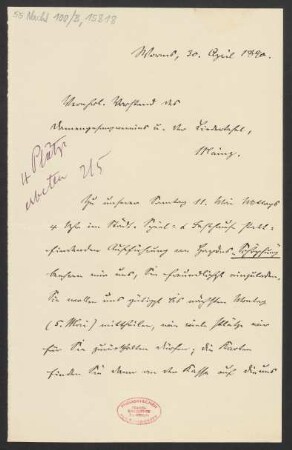 55 Nachl 100/B, 15818
Worms, 30. April 1890.
Verehrl. Vorstand des
Damengesangvereins u. der Liedertafel,
Mainz.
4 Plätze
erbeten 2/5
Zu unserer Sonntag 11. Mai Mittags
4 Uhr im Städt. Spiel- & Festhause statt-
findenden Aufführung von Haydns „Schöpfung“
beehren wir uns, Sie freundlichst einzuladen.
Sie wollen uns gefligst bis nächsten Montag
(5. Mai) mittheilen, wie viele Plätze wir
für Sie zurückhalten dürfen; die Karten
finden Sie dann an der Kasse auf die uns